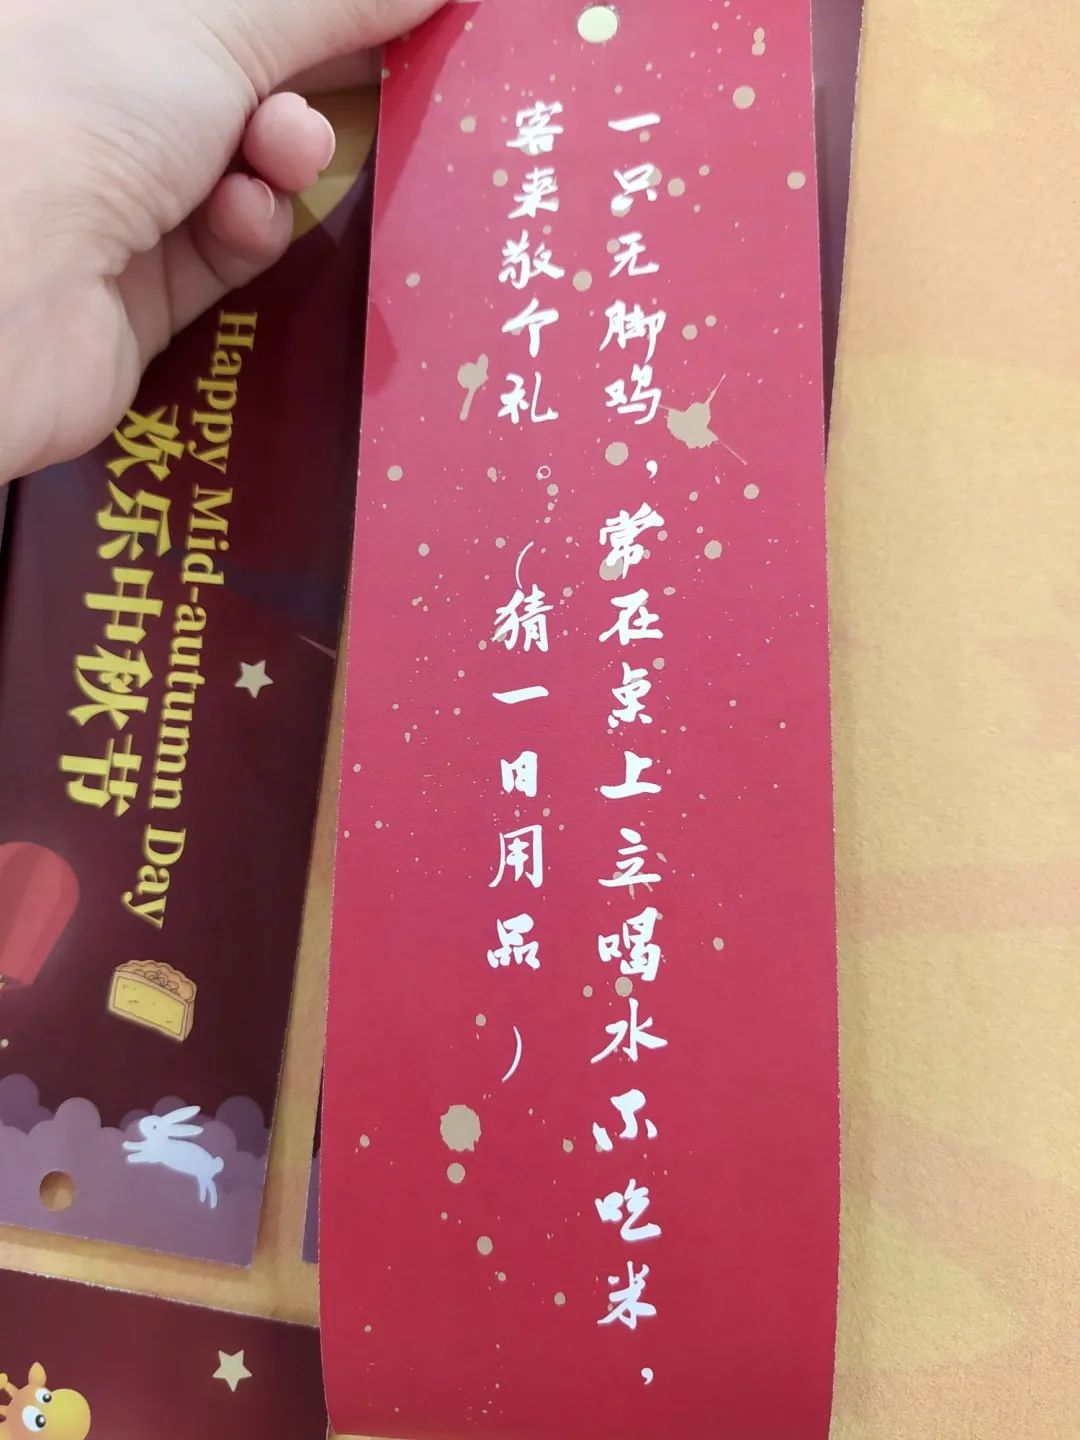 一只无脚鸡，常在桌上立喝水不吃米，
客来敬个礼。（猜一日用品）
Happy Mid-autumn Day
欢乐中秋节